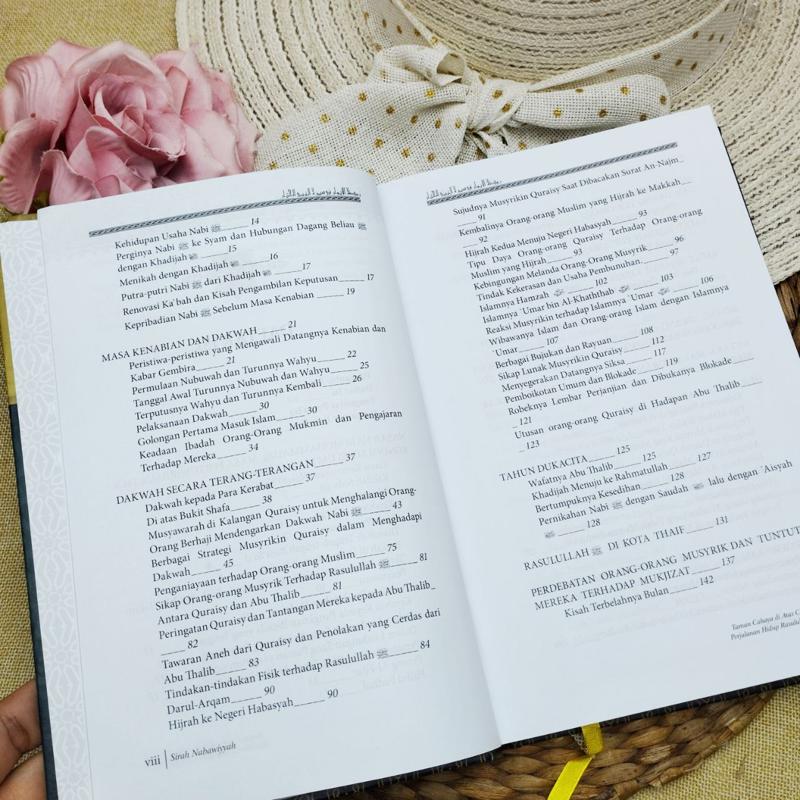 Kehidupan Usaha Nabi ﷺ______14
Perginya Nabi ﷺ ke Syam dan Hubungan Dagang Beliau ﷺ
dengan Khadijah ______15
Menikah dengan Khadijah ______16
Putra-putri Nabi ﷺ dari Khadijah ______17
Renovasi Ka'bah dan Kisah Pengambilan Keputusan______ 17
Kepribadian Nabi ﷺ Sebelum Masa Kenabian ______ 19
MASA KENABIAN DAN DAKWAH______ 21
Peristiwa-peristiwa yang Mengawali Datangnya Kenabian dan
Kabar Gembira______21
Permulaan Nubuwah dan Turunnya Wahyu______22
Tanggal Awal Turunnya Nubuwah dan Wahyu______25
Terputusnya Wahyu dan Turunnya Kembali______ 26
Pelaksanaan Dakwah______ 30
Golongan Pertama Masuk Islam______30
Keadaan Ibadah Orang-Orang Mukmin dan Pengajaran
Terhadap Mereka______ 34
DAKWAH SECARA TERANG-TERANGAN______ 37
Dakwah kepada Para Kerabat______37
Di atas Bukit Shafa______ 38
Musyawarah di Kalangan Quraisy untuk Menghalangi Orang-
Orang Berhaji Mendengarkan Dakwah Nabi ﷺ______ 43
Berbagai Strategi Musyrikin Quraisy dalam Menghadapi
Dakwah______ 45
Penganiayaan terhadap Orang-orang Muslim______ 75
Sikap Orang-orang Musyrik Terhadap Rasulullah ﷺ______ 81
Antara Quraisy dan Abu Thalib______ 81
Peringatan Quraisy dan Tantangan Mereka kepada Abu Thalib_
_____ 82
Tawaran Aneh dari Quraisy dan Penolakan yang Cerdas dari
Abu Thalib______ 83
Tindakan-tindakan Fisik terhadap Rasulullah ﷺ______ 84
Darul-Arqam______ 90
Hijrah ke Negeri Habasyah______ 90
viii | Sirah Nabawiyyah
Sujudnya Musyrikin Quraisy Saat Dibacakan Surat An-Najm_
____91
Kembalinya Orang-orang Muslim yang Hijrah ke Makkah__
____92
Hijrah Kedua Menuju Negeri Habasyah______ 93
Tipu Daya Orang-orang Quraisy Terhadap Orang-orang
Muslim yang Hijrah______93
Kebingungan Melanda Orang-Orang Musyrik______96
Tindak Kekerasan dan Usaha Pembunuhan______ 97
Islamnya Hamzah ______ 102
Islamnya 'Umar bin Al-Khaththab ______ 103
Reaksi Musyrikin terhadap Islamnya 'Umar ______ 106
Wibawanya Islam dan Orang-orang Islam dengan Islamnya
'Umar______ 107
Berbagai Bujukan dan Rayuan______ 108
Sikap Lunak Musyrikin Quraisy______ 112
Menyegerakan Datangnya Siksa______ 117
Pemboikotan Umum dan Blokade______ 119
Robeknya Lembar Perjanjian dan Dibukanya Blokade____
_ 121
Utusan orang-orang Quraisy di Hadapan Abu Thalib____
_ 123
TAHUN DUKACITA______ 125
Wafatnya Abu Thalib______ 125
Khadijah Menuju ke Rahmatullah______ 127
Bertumpuknya Kesedihan______ 128
Pernikahan Nabi ﷺ dengan Saudah lalu dengan 'Aisyah
______ 128
RASULULLAH ﷺ DI KOTA THAIF______ 131
PERDEBATAN ORANG-ORANG MUSYRIK DAN TUNTUT
MEREKA TERHADAP MUKJIZAT______ 137
Kisah Terbelahnya Bulan______ 142
Taman Cahaya di Atas C
Perjalanan Hidup Rasulul